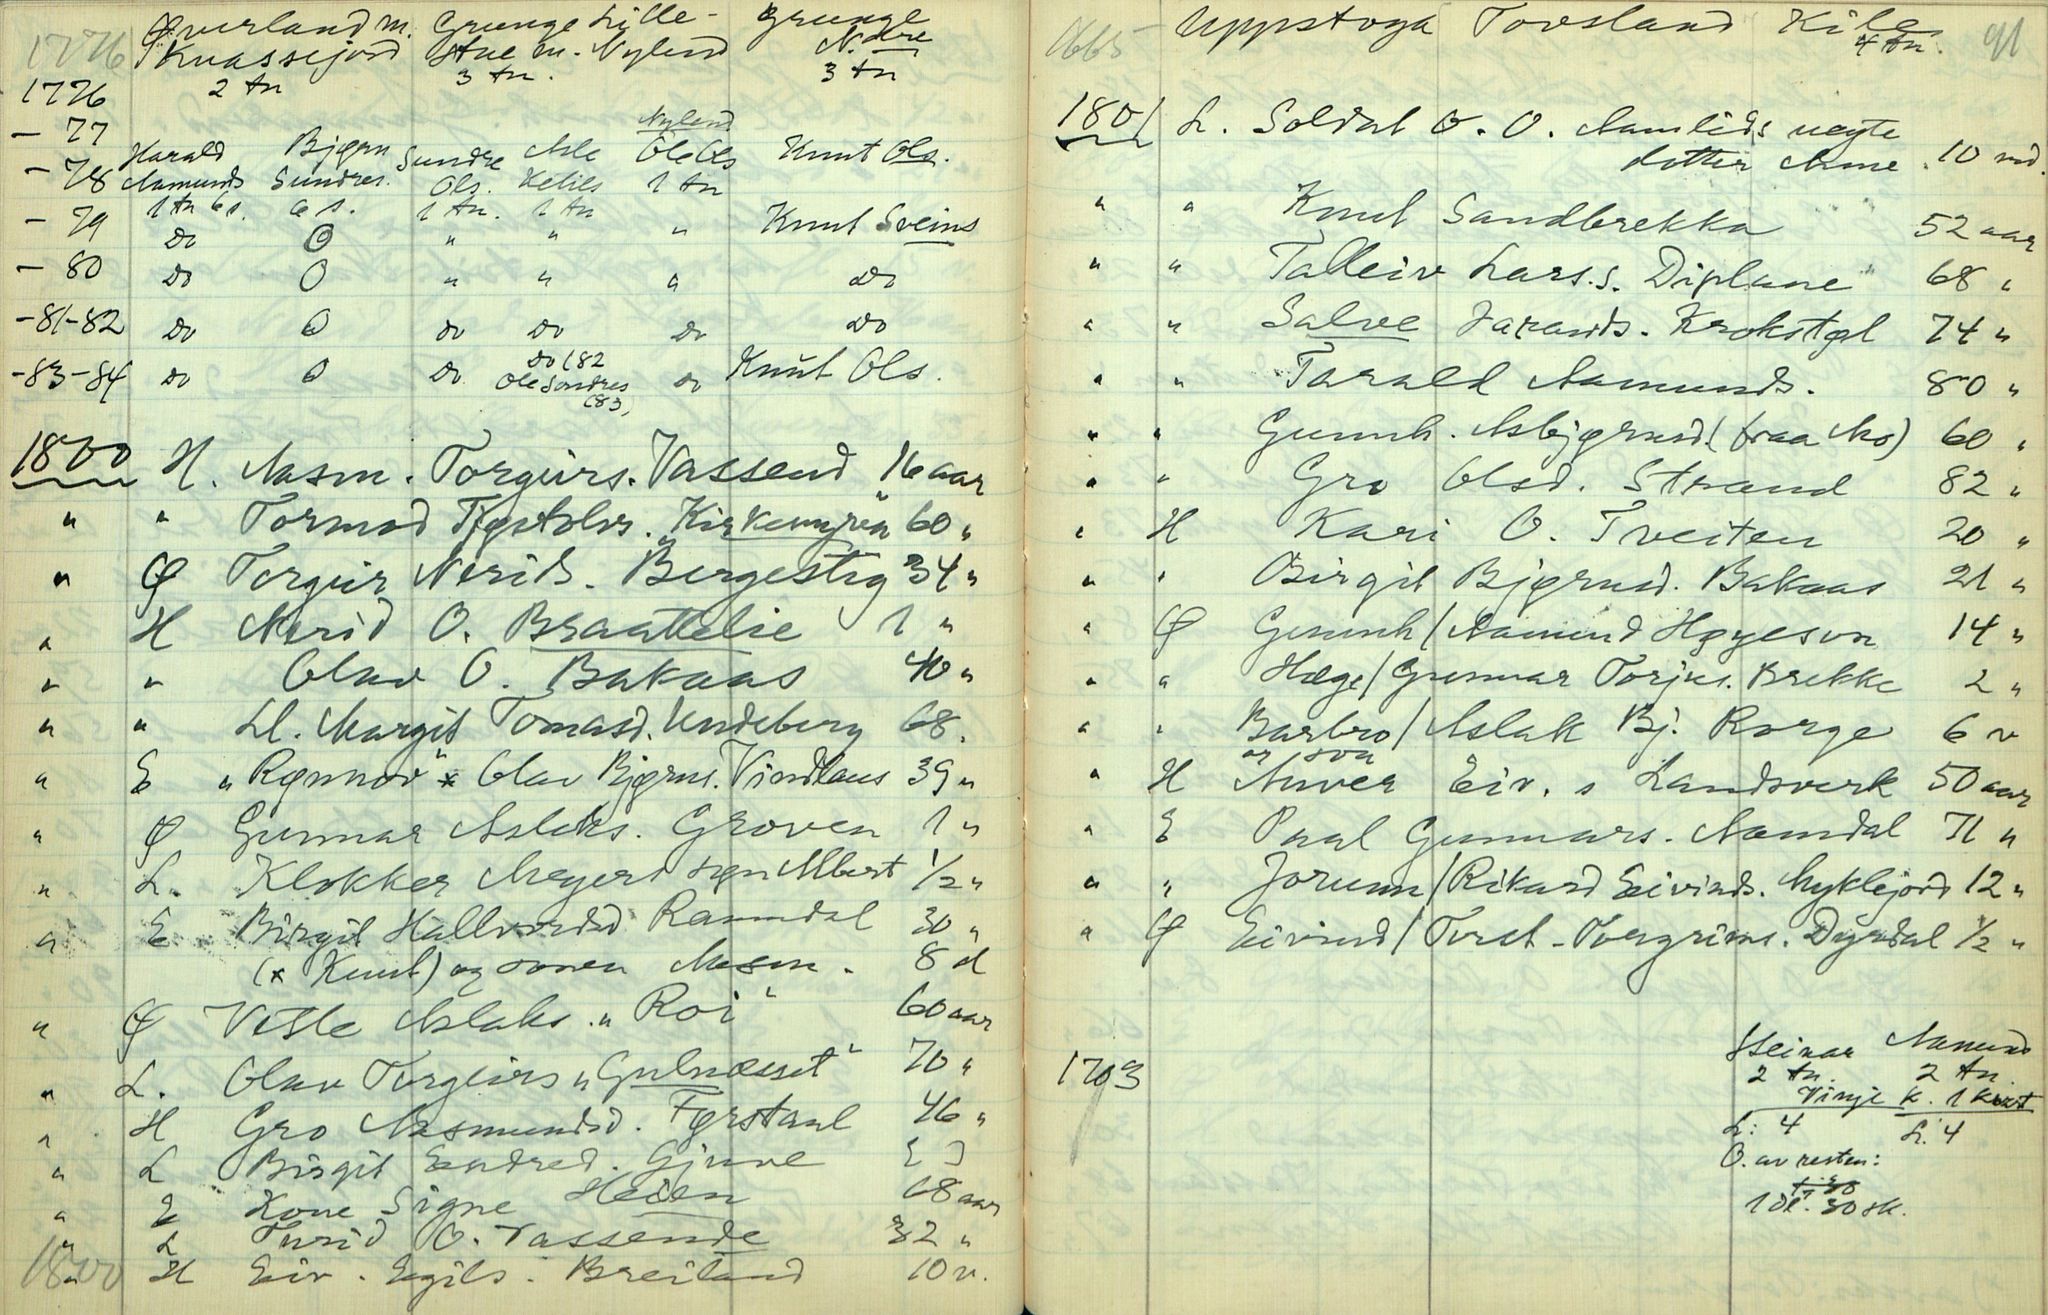 1776 Øverland m. Grunge Lille- Grunge
Kvassejord Stue m. Nylend N.dre
2 tn 3 tn. 3 tn
1776
- 77 Nylend
Harald Bjørn Sundre Asle Ole Ols Knut Ols.
- 78 Aamunds Sundres. Ols. Ketils 1 tn
1 tn 6 s. 6 s. 1 tn. 1 tn
- 79 do O " " " Knut Sveins
- 80 do O " " " do
- 81-82 do O do do do do
do (82
- 83-84 do O do Ole Sondres do Knut Ols.
(83)
1800 H. Aasm. Torgeirs. Vassend 16 aar
" " Tormod Kjetolvs. "Kirkemyren" 60 "
" Ø Torgeir Nerids. Bergestig 34 "
" H Nerid O. Braattelie 1 "
" " Olav O. Bakaas 40 "
" " Ll. Margit Tomasd. Undeberg 68.
" E "Rønnov" * Olav Bjørns. Vindlaus 39 "
" Ø Gunnar Aslaks. Groven 1 "
" L. Klokker Meyers søn Albert 1/2 "
" E Birgit Hallvordsd Raundal 30 "
(* Knut) og sonen Aasm. 8 d
" Ø Vetle Aslaks. "Roi" 60 aar
" L. Olav Torgeirs "Gulnæsset" 70 "
" H Gro Aasmundsd. Førstaul 46 "
" L Birgit Endred. Gjuve [ ]
" E Kone Signe Heien 68 aar
" L Turid O. Vassende 32 "
1800 " H Eiv. Egils. Breiland 10 v.
1665 Uppstoga Tovsland Kile 91
4 tn.
1801 L. Soldat O. O. Aamlids uegte
dotter Anne. 10 md.
" " Knut Sandbrekka 52 aar
" " Talleiv Lars.s. Diplane 68 "
" " Salve Jarands. Krokstøl 74 "
" " Tarald Aamunds. 80 "
" " Gunnh. Asbjørnsd (fraa Mo) 60 "
" " Gro Olsd. Strand 82 "
" H Kari O. Tveiten 20 "
" " Birgit Bjørnsd. Bakaas 21 "
" Ø Gunnh / Aamund Høgeson 14 "
" " Hæge / Gunnar Torjus. Brekke 2 "
" " Barbro / Aslak Bj. Rorge 6 v
" H Anver Eiv. s Landsverk 50 aar
" E Paal Gunnars. Aamdal 71 "
" " Jorunn / Rikard Eivinds. Myklejord 12 "
" Ø Eivind / Torst. Torgrims. Dyrdal 1/2 "
1703 Steinar Aamund
2 tn. 2 tn.
Vinje K. 1 kvart
L: 4 L. 4
O. av resten:
1 dl. 30 sk.